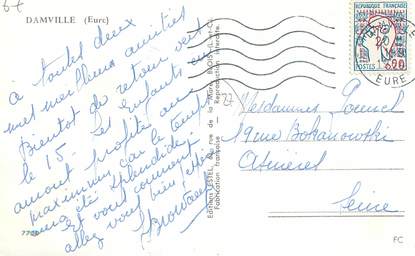 DAMVILLE (Eure)
A toutes deux
mes meilleures amitiés
Bientôt de retour
le 15. Les enfants
auront profité au
maximum car le temps
a été splendide.
et vous comment
allez vous bien j'espère
Mesdames
19 rue Bokanowski
Asnières
Seine
REPUBLIQUE FRANÇAISE
POSTES
0,20
EURE
Editions ESTEL
Fabrication française - Reproduction interdite
7729
FC